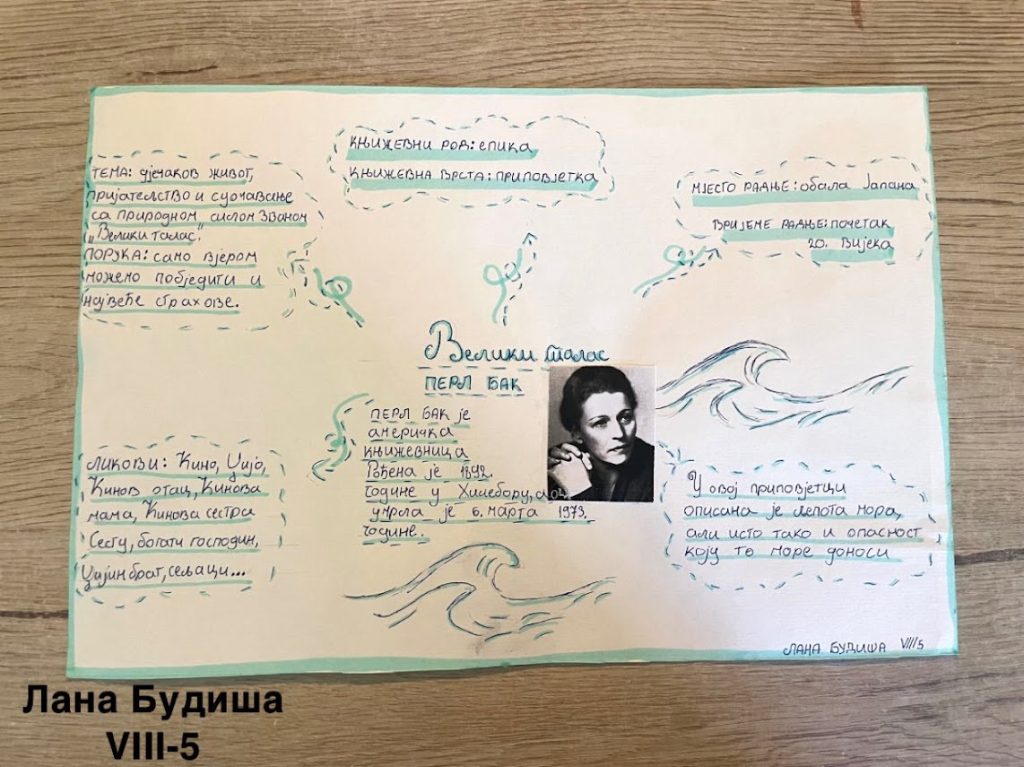 КЊИЖЕВНИ РОД: епика
КЊИЖЕВНА ВРСТА: ПРИПОВЈЕТКА
ТЕМА: дјечаков живот,
пријатељство и суочавање
са природном силом званом
„Велики талас.“
ПОРУКА: само вјером
можемо побједити и
највеће страхове.
МЈЕСТО РАДЊЕ: обала Јапана
ВРИЈЕМЕ РАДЊЕ: почетак
20. вијека
Велики талас
ПЕРЛ БАК
ПЕРЛ БАК је
америчка
књижевница
Рођена је 1892.
године у Хилсбору,
умрла је 6. марта 1973.
године.
ЛИКОВИ: Кино, Џијо,
Кинов отац, Кинова
мама, Кинова сестра
Сецу, богати господин,
Џијин брат, сељаци...
У овој приповјетци
описана је лепота мора,
али исто тако и опасност
коју то море доноси
ЛАНА БУДИША VIII/5
Лана Будиша
VIII-5